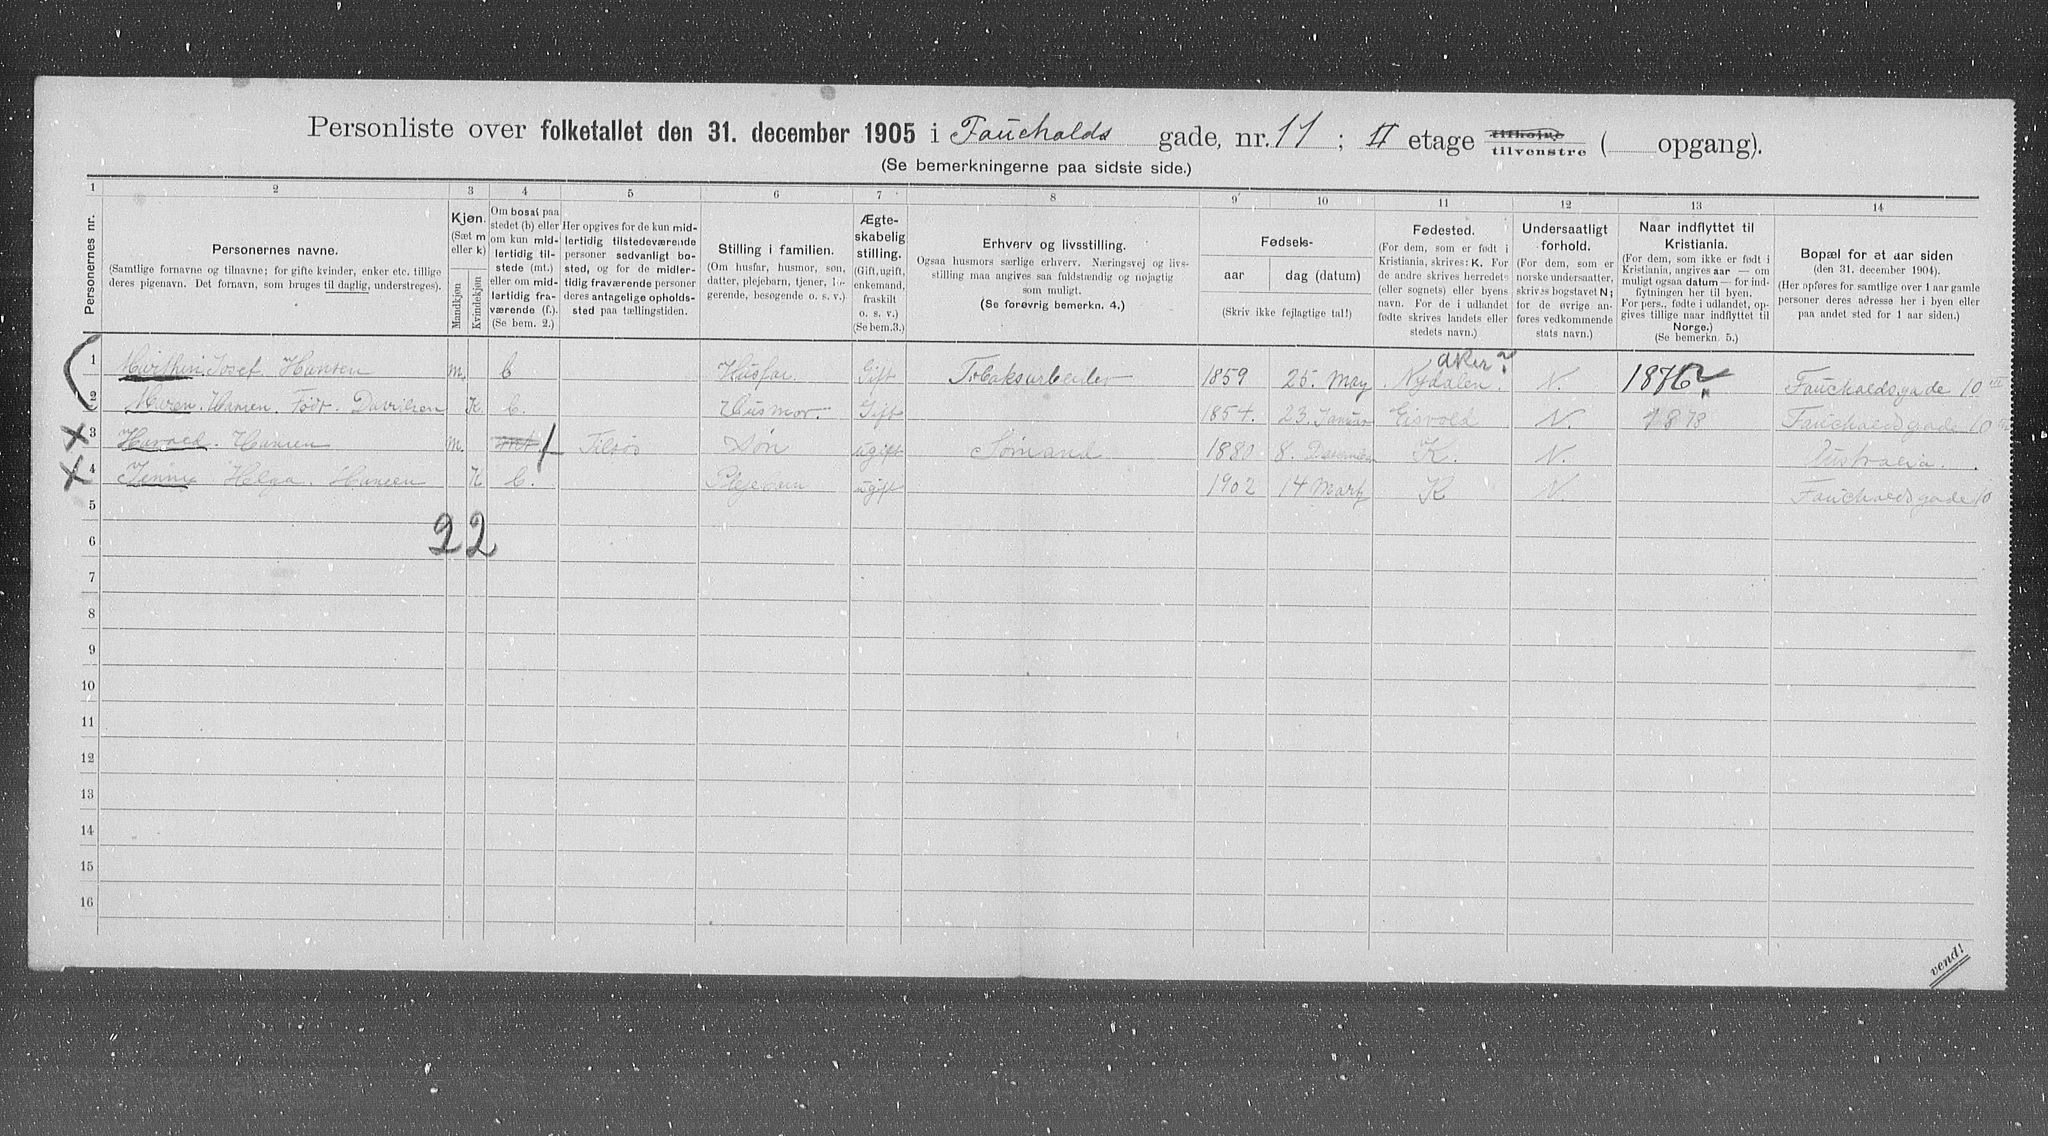 Personliste over folketallet den 31. december 1905 i Fauchalds gade, nr. 11 ; II etage tilhøire tilvenstre ( opgang).
(Se bemerkningerne paa sidste side.)
1 2 3 4 5 6 7 8 9 10 11 12 13 14
Personernes nr.
Personernes navne.
(Samtlige fornavne og tilnavne; for gifte kvinder, enker etc. tillige deres pigenavn. Det fornavn, som bruges til daglig, understreges).
Kjøn.
(Sæt m eller k)
Mandkjøn
Kvindekjøn
Om bosat paa stedet (b) eller om kun midlertidig tilstede (mt.) eller om midlertidig fraværende (f.). (Se bem. 2.)
Her opgives for de kun midlertidig tilstedeværende personer sedvanligt bosted, og for de midlertidig fraværende personer deres antagelige opholdssted paa tællingstiden.
Stilling i familien.
(Om husfar, husmor, søn, datter, plejebarn, tjener, logerende, besøgende o. s. v.)
Ægteskabelig stilling.
(Gift, ugift, enkemand, fraskilt o. s. v.)
(Se bem.3.)
Erhverv og livsstilling.
Ogsaa husmors særlige erhverv. Næringsvej og livsstilling maa angives saa fuldstændig og nøjagtig som muligt.
(Se forøvrig bemerkn. 4.)
Fødsels-
aar
dag (datum)
(Skriv ikke fejlagtige tal!)
Fødested.
(For dem, som er født i Kristiania, skrives: K. For de andre skrives herredets (eller sognets) eller byens navn. For de i udlandet fødte skrives landets eller stedets navn.)
Undersaatligt forhold.
(For dem, som er norske undersaatter, skrives bogstavet N; for de øvrige anføres vedkommende stats navn.)
Naar indflyttet til Kristiania.
(For dem, som ikke er født i Kristiania, angives aar — om muligt ogsaa datum — for indflytningen her til byen. For pers., fødte i udlandet, opgives tillige naar indflyttet til Norge.)
(Se bemerkn. 5.)
Bopæl for et aar siden
(den 31. december 1904).
(Her opføres for samtlige over 1 aar gamle personer deres adresse her i byen eller paa andet sted for 1 aar siden.)
Aker?
1 Marthin Josef Hansen m. b Husfar. Gift Tobaksarbeider 1859 25. May Nydalen. N. 1876? Fauchaldsgade 10 III
2 Maren. Hansen. Født. Davidsen K b. Husmor. Gift 1854. 23 Januar Eisvold N. 1878 Fauchaldsgade 10
3 Harald. Hansen m. mt f Tilsøs Søn ugift Sømand 1880 8. December K. N. Australia.
4 Jenny Helga. Hansen K b. Plejebarn ugift 1902 14 Marts K N. Fauchaldsgade 10
5
2 2
6
7
8
9
10
11
12
13
14
15
16
vend!